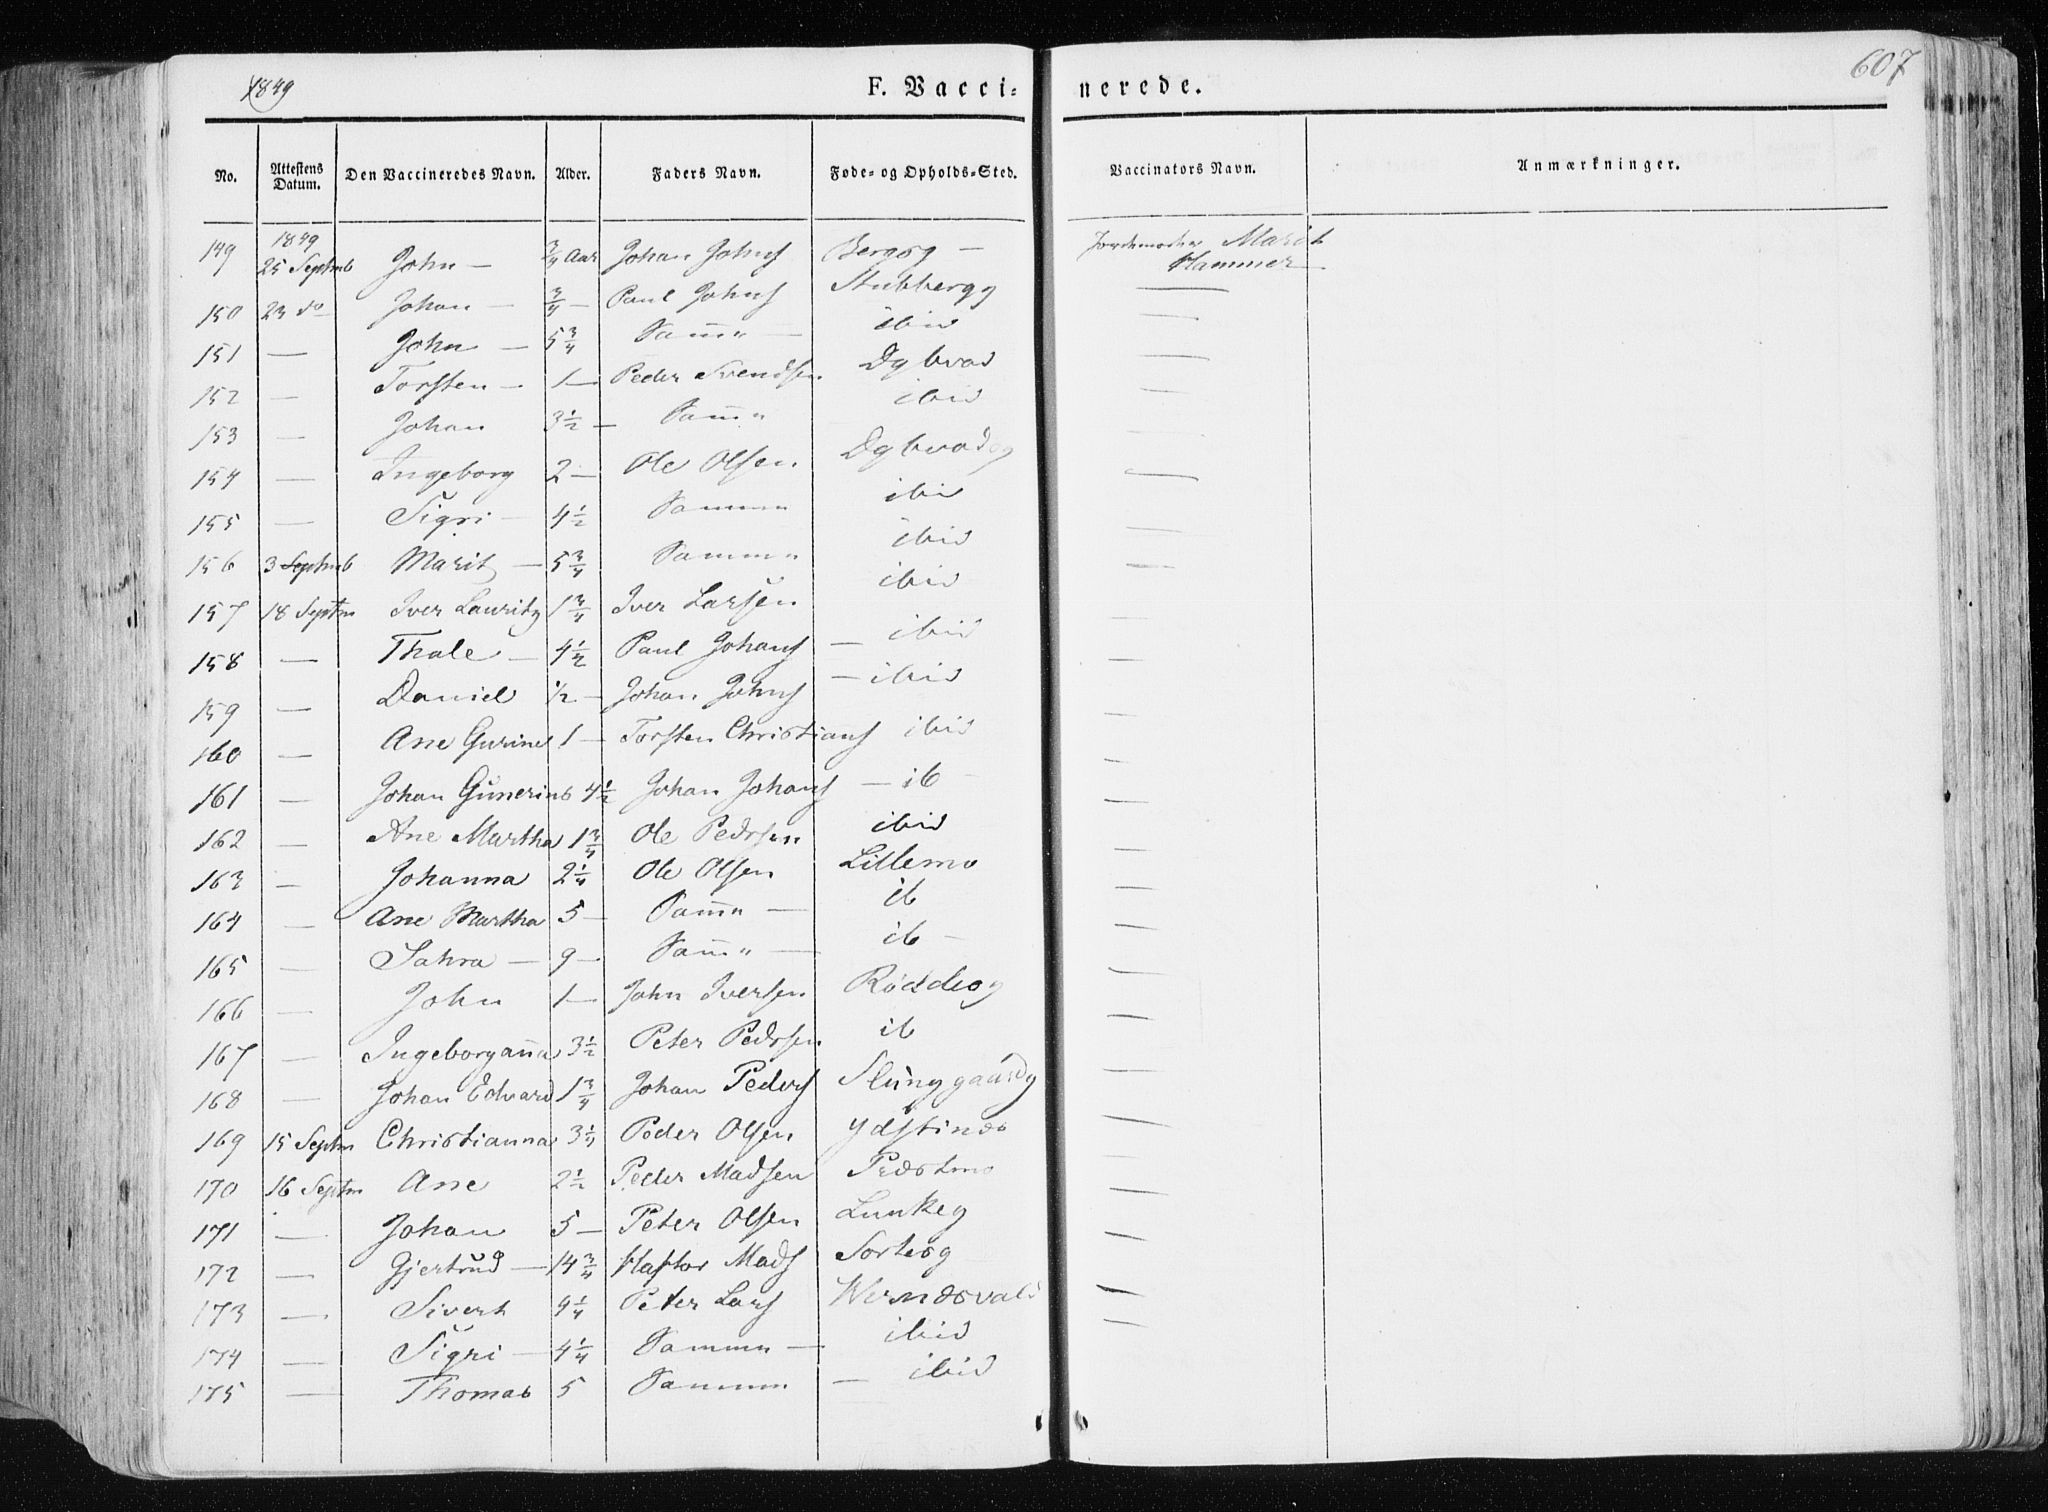 1849
F. Vacci-nerede.
607
No. Attestens Datum. Den Vaccineredes Navn. Alder. Faders Navn. Føde- og Opholds-Sted. Vaccinators Navn. Anmærkninger.
149 1849 25 Septmb John — 3/4 Aar Johan Johns — Jordemoder Marit Hammer —
150 23 do Johan — 3/4 — Paul Johns Stubberg
151 — John — 5 3/4 Samme — ibid
152 — Torsten — 1 — Peder Svendsen Dybvad
153 — Johan 3 1/2 — Samme ibid
154 — Ingeborg 2 — Ole Olsen
155 — Sigri — 4 1/2 Samme ibid
156 3 Septmb Marit — 5 3/4 Samme ibid
157 18 Septm Iver Lauritz 1 3/4 Iver Larsen ibid
158 — Thale — 4 1/2 Paul Johans — ibid
159 — Daniel 1/2 — Johan Johns — ibid
160 — Ane Gurine 1 — Torsten Christians ibid
161 — Johan Gunerius 4 1/2 Johan Johans — ib —
162 — Ane Martha 1 3/4 Ole Pedrsen ibid
163 — Johanna 2 1/4 Ole Olsen Lillemo
164 — Ane Martha 5 — Samme — ib
165 — Sahra — 9 — Samme — ib —
166 — John 1 — John Iversen
167 — Ingeborganna 3 1/2 Peter Pedrsen ib
168 — Johan Edvard 1 3/4 Johan Peders
169 15 Septm Christianna Peder Olsen
170 16 Septm Ane 2 1/2 Peder Madsen
171 — Johan 5 — Peter Olsen
172 — Gjertrud — 14 3/4 Haftor Mads
173 — Sivert Peter Lars
174 — Sigri — 4 1/4 Samme — ibid
175 — Thomas 5 Samme — ibid